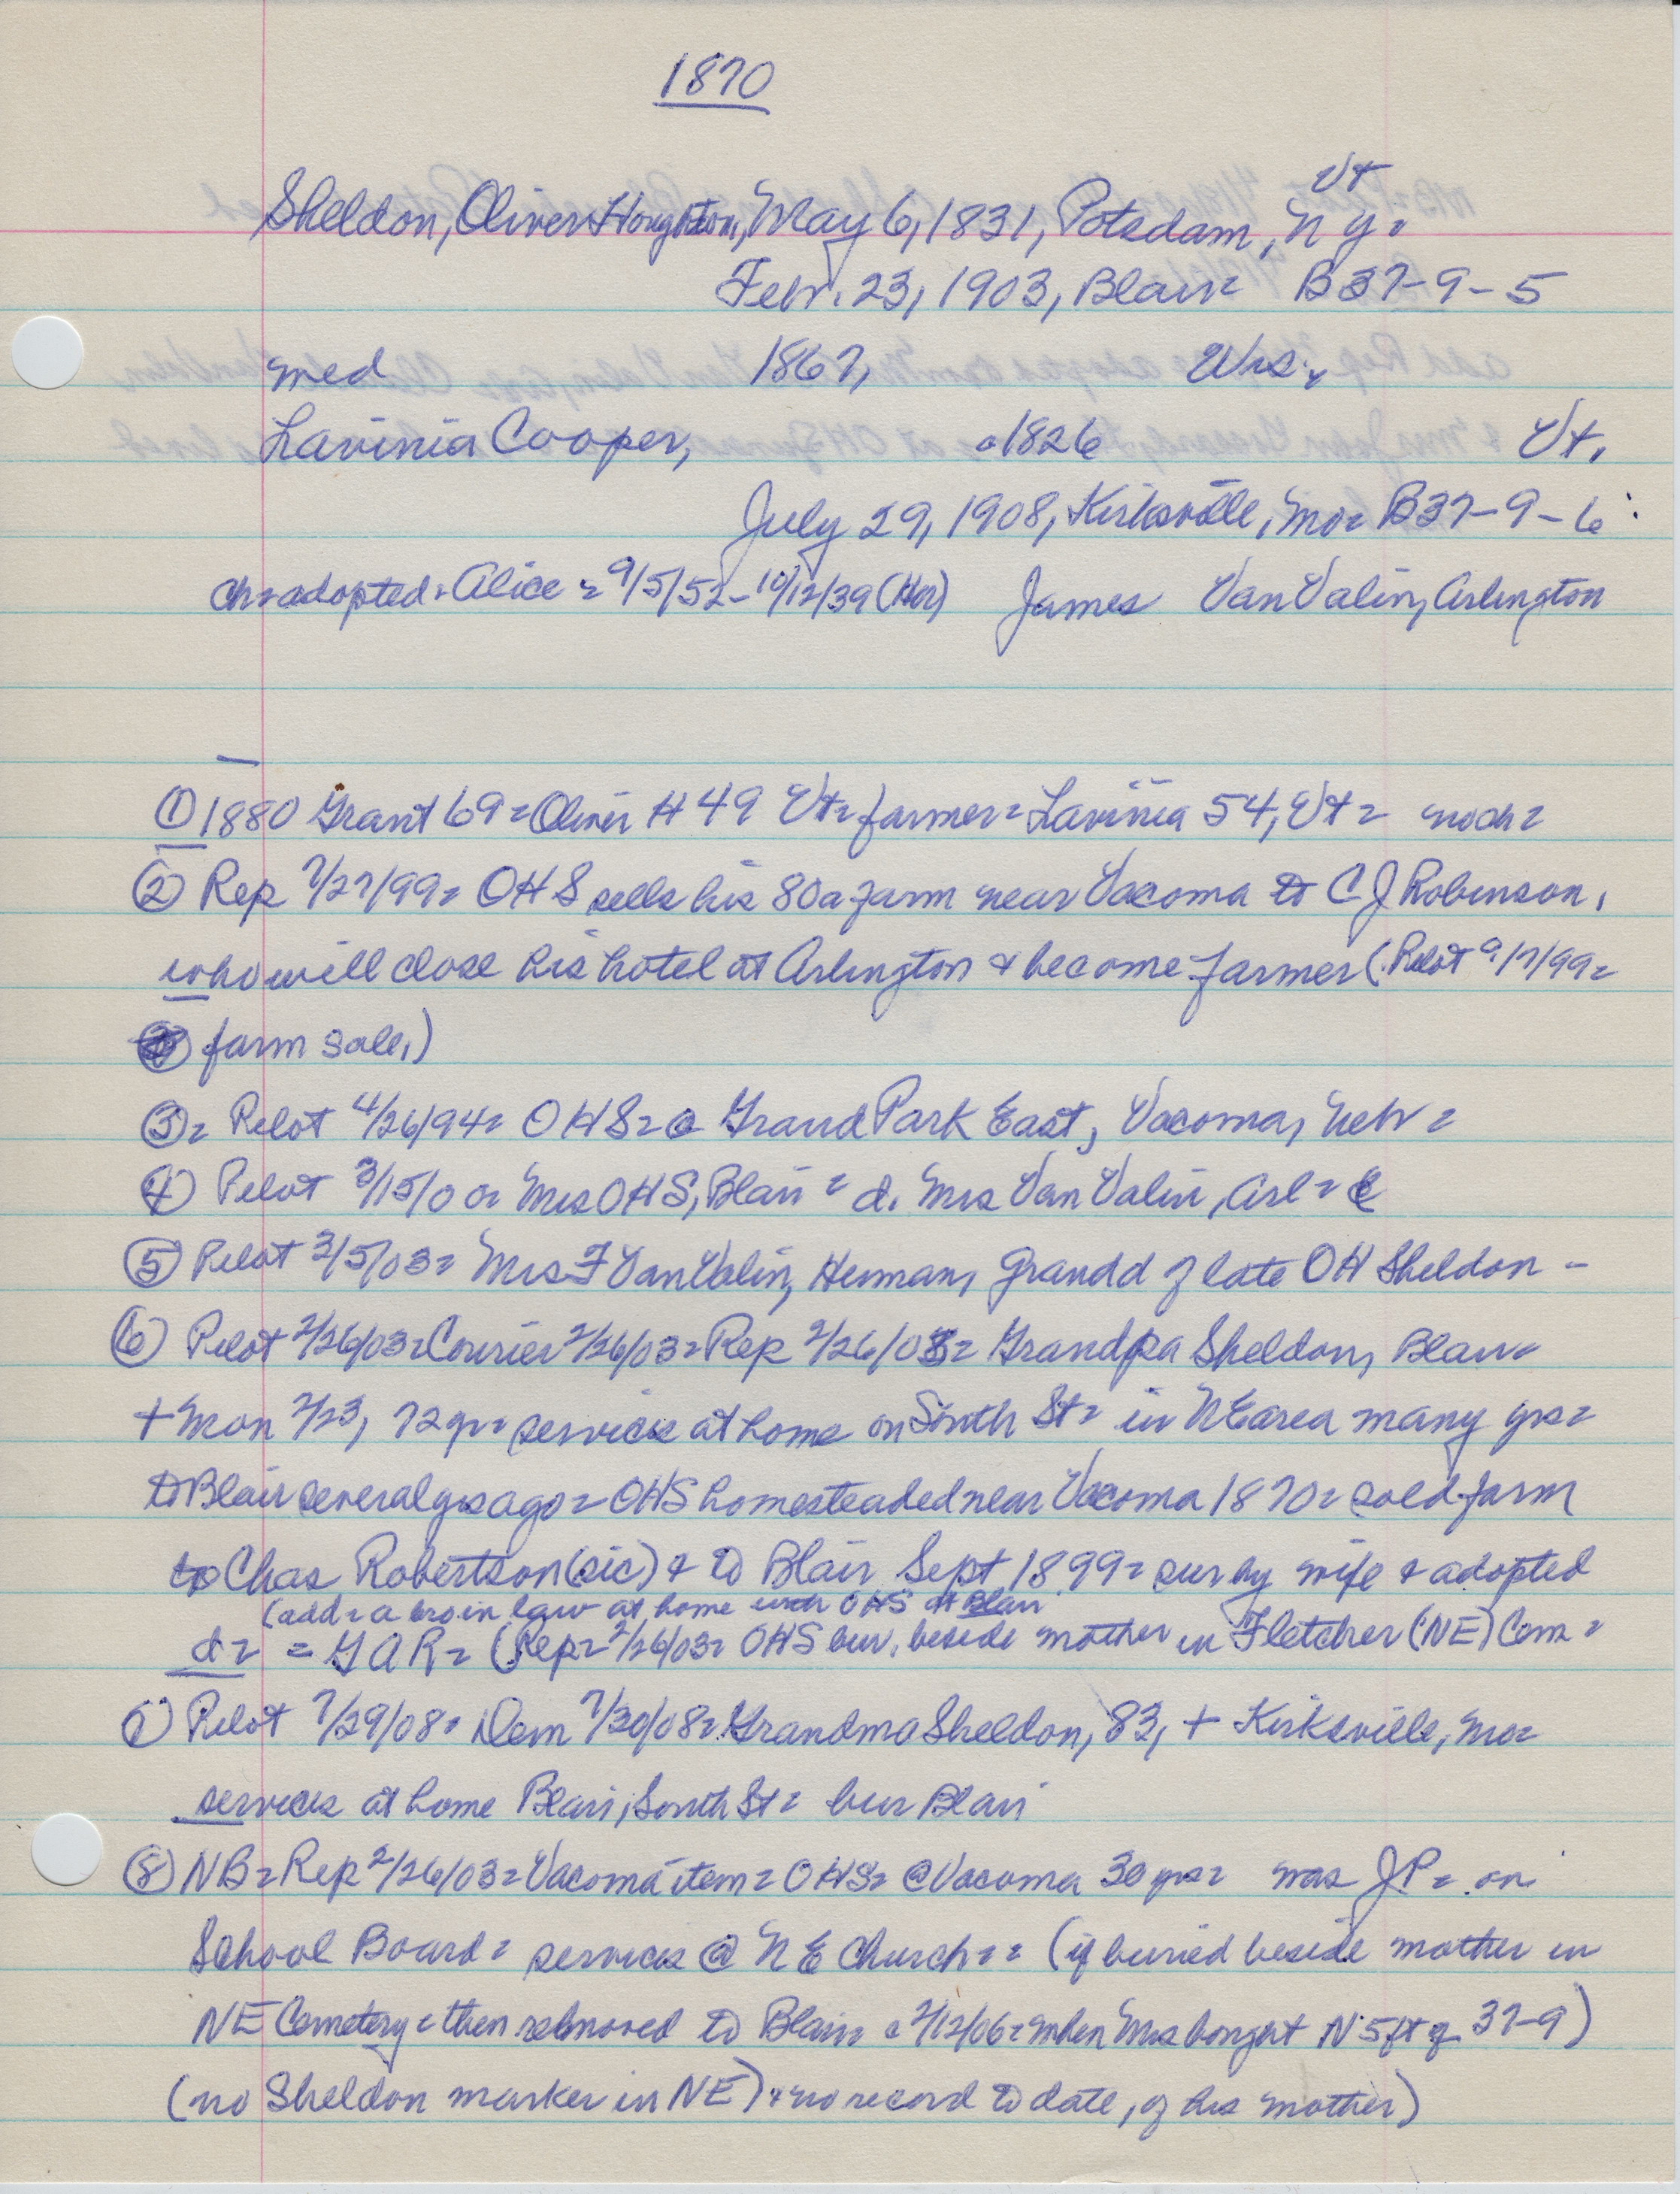 1870
Vt
Sheldon, Oliver Houghton, May 6, 1831, Potsdam, N Y =
Febr. 23, 1903, Blair = B37-9-5
med 1867, Wis.,
Lavinia Cooper, c1826 Vt.
July 29, 1908, Kirksville, Mo = B37-9-6
ch = adopted = Alice = 9/5/52 - 10/12/39 (Her) James Van Valin, Arlington
① 1880 Grant 69 = Oliver H 49 Vt = farmer = Lavinia 54, Vt = no ch =
② Rep 7/27/99 = OHS sells his 80a farm near Vacoma to C J Robinson,
who will close his hotel at Arlington & become farmer (Pilot 9/7/99 =
farm sale,)
③ = Pilot 4/26/94 = OHS = Grand Park East, Vacoma, Nebr =
④ Pilot 3/15/00 = Mrs OHS, Blair = d. Mrs Van Valin, Arl =
⑤ Pilot 3/5/03 = Mrs F Van Valin, Herman, grandd of late OH Sheldon -
⑥ Pilot 2/26/03 = Courier 2/26/03 = Rep 2/26/03 = Grandpa Sheldon, Blair
+ Mon 2/23, 72 yr = services at home on South St = in NE area many yrs =
to Blair several yrs ago = OHS homesteaded near Vacoma 1870 = sold farm
to Chas Robertson (sic) & to Blair Sept 1899 = sur by wife & adopted
(add = a bro in law at home with OHS at Blair
d = = GAR = (Rep = 2/26/03 = OHS bur. beside mother in Fletcher (NE) Cem =
⑦ Pilot 7/29/08 = Dem 7/30/08 = Grandma Sheldon, 83, + Kirksville, Mo =
services at home Blair, South St = bur Blair
⑧ NB = Rep 2/26/03 = Vacoma item = OHS = @ Vacoma 30 yrs = was JP = on
School Board = services @ N E Church = = (if buried beside mother in
NE Cemetery = then removed to Blair = c 2/12/06 = when Mrs bought N 5 ft of 37-9)
(no Sheldon marker in NE) & no record to date, of his mother)